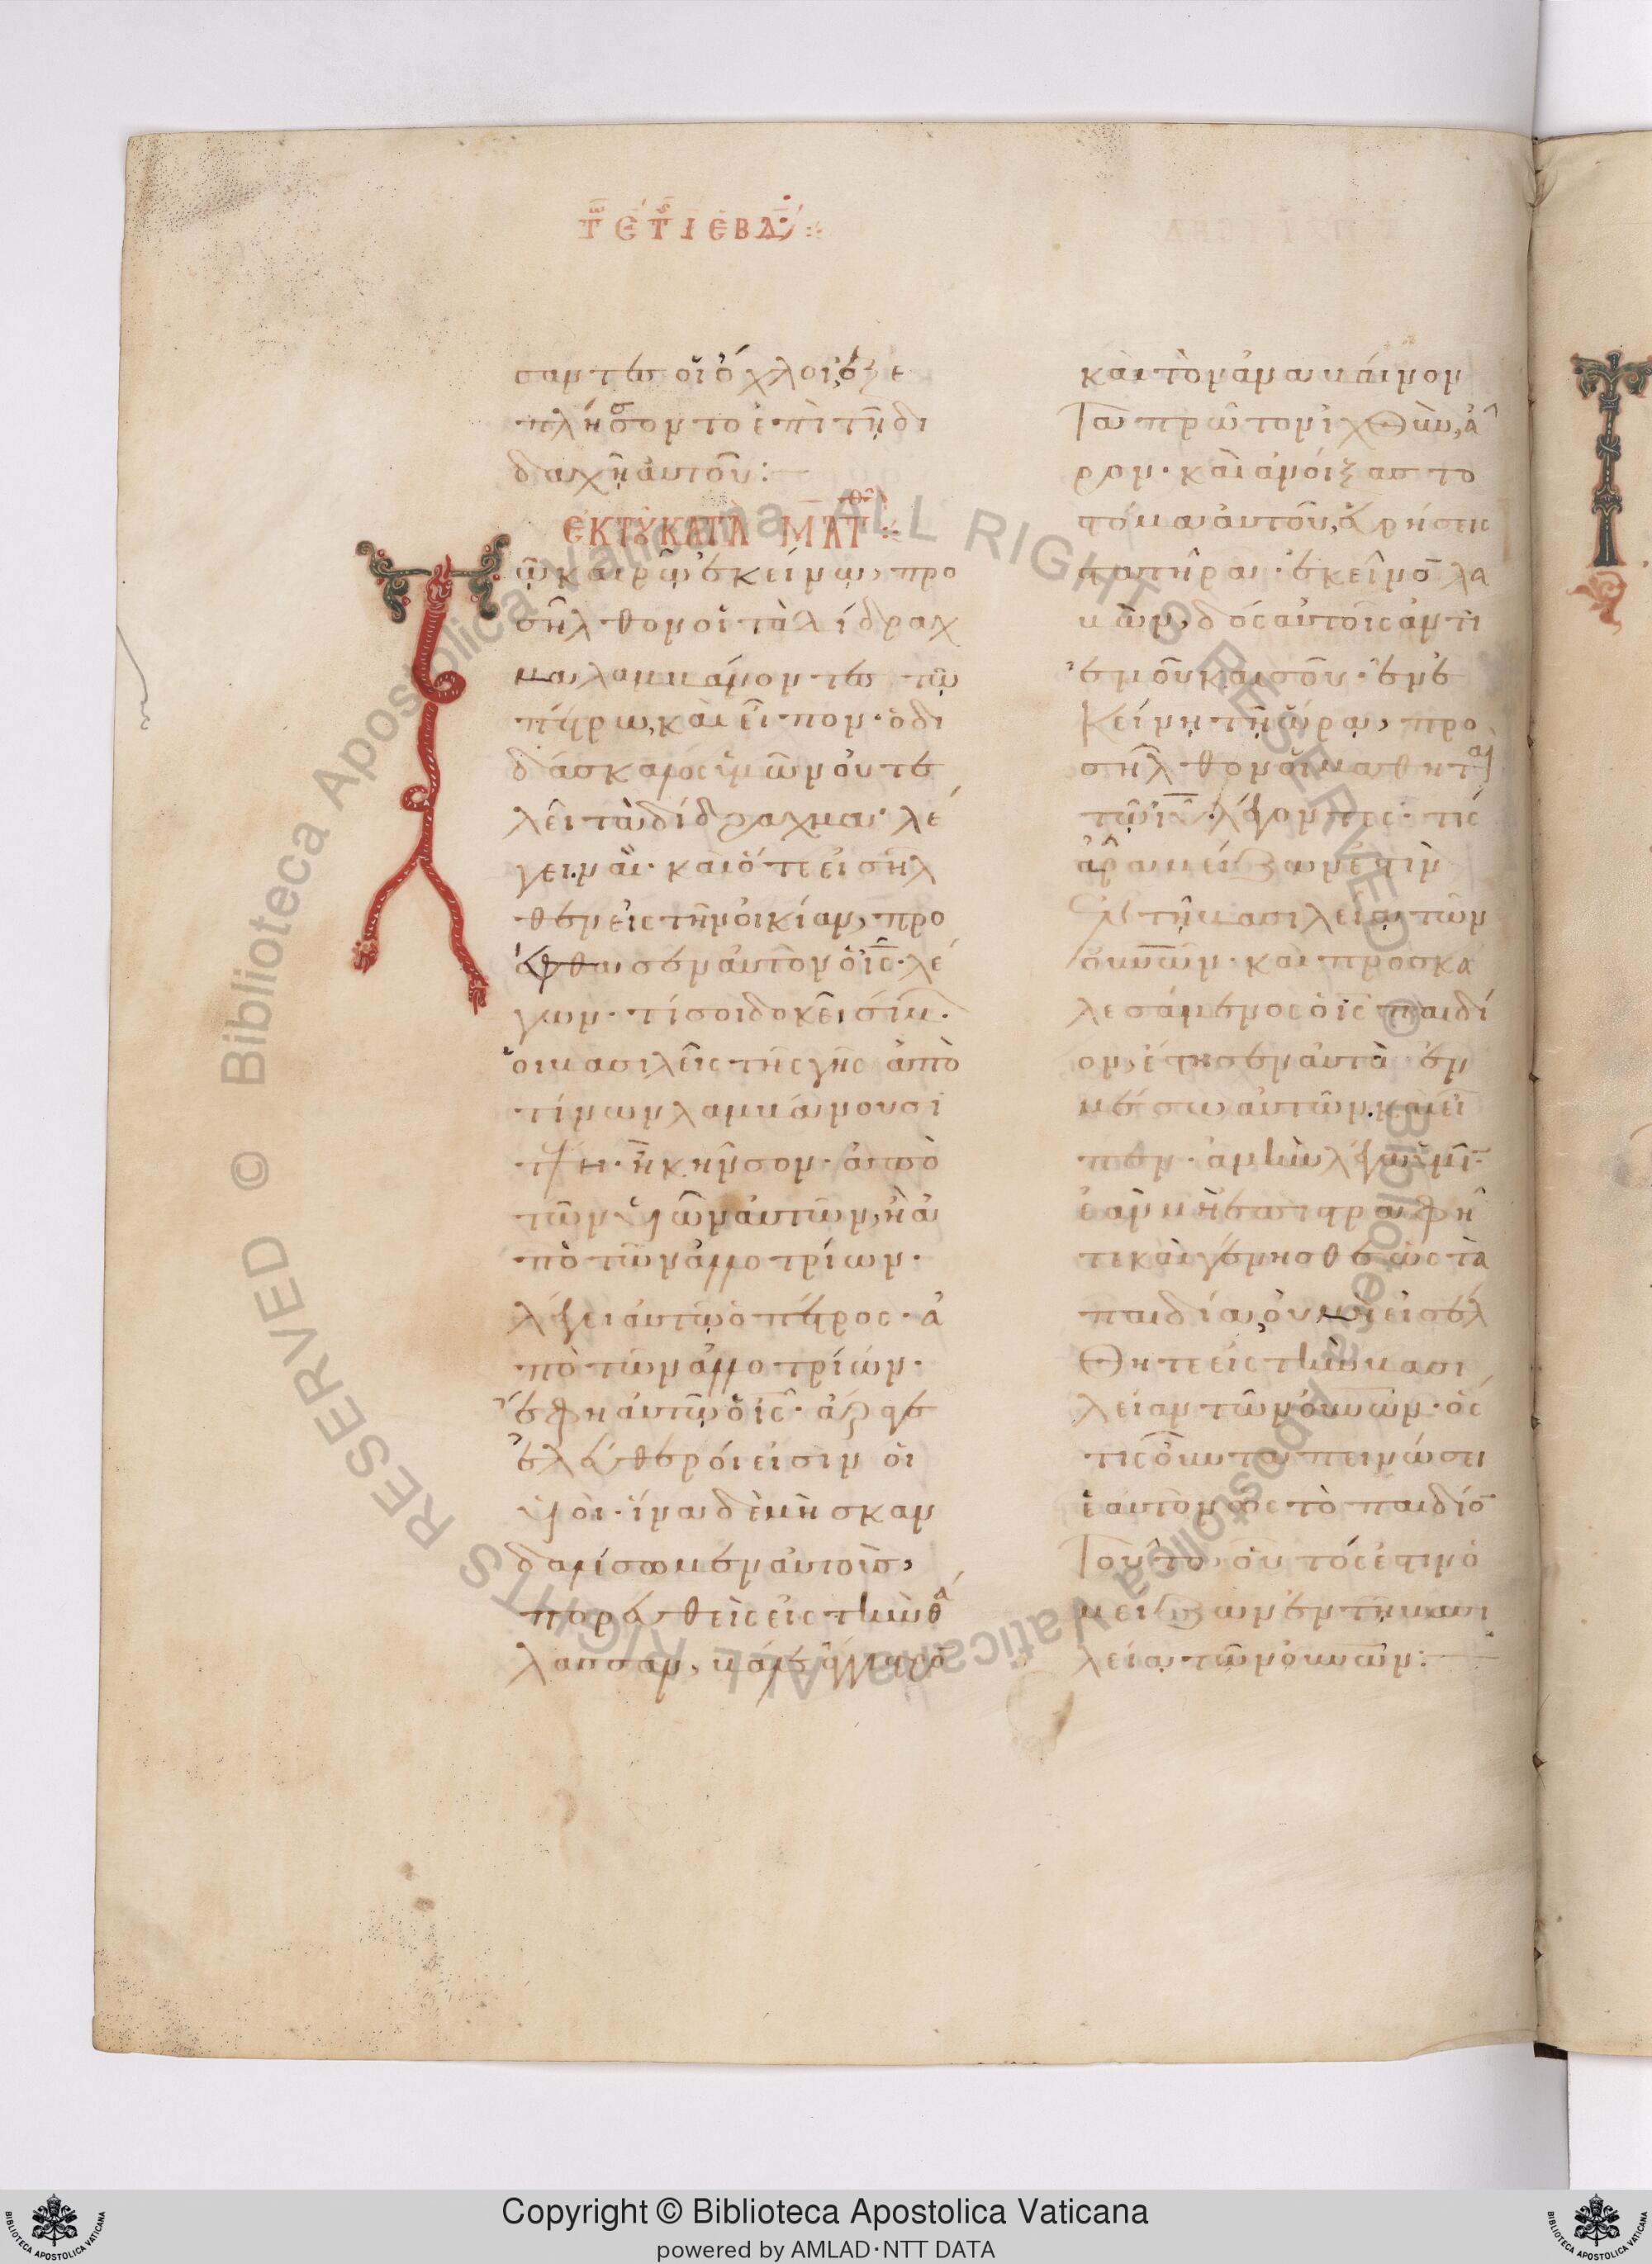 Τῶ Ε΄ Τῆς Ι ΕΒΔ
σαντες οἱ ὄχλοι, ἐξε
πλήσσοντο ἐπὶ τῇ δι
δαχῇ αὐτοῦ:
ΕΚ ΤΟΥ ΚΑΤΑ ΜΑΤΘ
Τῷ καιρῷ ἐκείνῳ, προ
σῆλθον οἱ τὰ δίδραχ
μα λαμβάνοντες τῷ
πέτρω, καὶ εἶπον· ὁ δι
δάσκαλος ὑμῶν οὐ τε
λεῖ τὰ δίδραχμα· λέ
γει. ναί· καὶ ὅτε εἰσῆλ
θεν εἰς τὴν οἰκίαν, προ
έφθασεν αὐτὸν ὁ ις· λέ
γων· τί σοι δοκεῖ σίμ·
οἱ βασιλεῖς τῆς γῆς ἀπὸ
τίνων λαμβάνουσι
τέλη· ἢ κῆνσον· ἀπὸ
τῶν υἱῶν αὐτῶν, ἢ ἀ
πὸ τῶν ἀλλοτρίων·
λέγει αὐτῷ ὁ πέτρος· ἀ
πὸ τῶν ἀλλοτρίων·
ἔφη αὐτῷ ὁ ις· ἄραγε
ἐλεύθεροί εἰσιν οἱ
υἱοί· ἵνα δὲ μὴ σκαν
δαλίσωμεν αὐτοὺς,
πορευθεὶς εἰς τὴν θά
λασσαν, βάλε ἄγκιστρο
καὶ τὸν ἀναβάντα
πρῶτον ἰχθὺν, ἆ
ρον· καὶ ἀνοίξας τὸ
στόμα αὐτοῦ, εὑρήσεις
στατῆρα· ἐκεῖνο λα
βὼν, δὸς αὐτοῖς ἀντὶ
ἐμοῦ καὶ σοῦ· ἐν ἐ
κείνῃ τῇ ὥρᾳ, προ
σῆλθον οἱ μαθηταὶ
τῷ ιυ λέγοντες· τίς
ἄρα μείζων ἐστὶν
ἐν τῇ βασιλείᾳ τῶν
οὐνῶν· καὶ προσκα
λεσάμενος ὁ ις παιδί
ον, ἔστησεν αὐτὸ ἐν
μέσω αὐτῶν. καὶ εἶ
πεν· ἀμὴν λέγω ὑμῖ·
ἐὰν μὴ στραφῆ
τε καὶ γένησθε ὡς τὰ
παιδία, οὐ μὴ εἰσέλ
θητε εἰς τὴν βασι
λείαν τῶν οὐνῶν· ὅσ
τις οὖν ταπεινώσει
ἑαυτὸν ὡς τὸ παιδίο
τοῦτο, οὗτός ἐστιν ὁ
μείζων ἐν τῇ βασι
λείᾳ τῶν οὐνῶν:
© Biblioteca Apostolica Vaticana ALL RIGHTS RESERVED
© Biblioteca Apostolica Vaticana ALL RIGHTS RESERVED
Copyright © Biblioteca Apostolica Vaticana
powered by AMLAD·NTT DATA
BIBLIOTECA APOSTOLICA VATICANA
BIBLIOTECA APOSTOLICA VATICANA